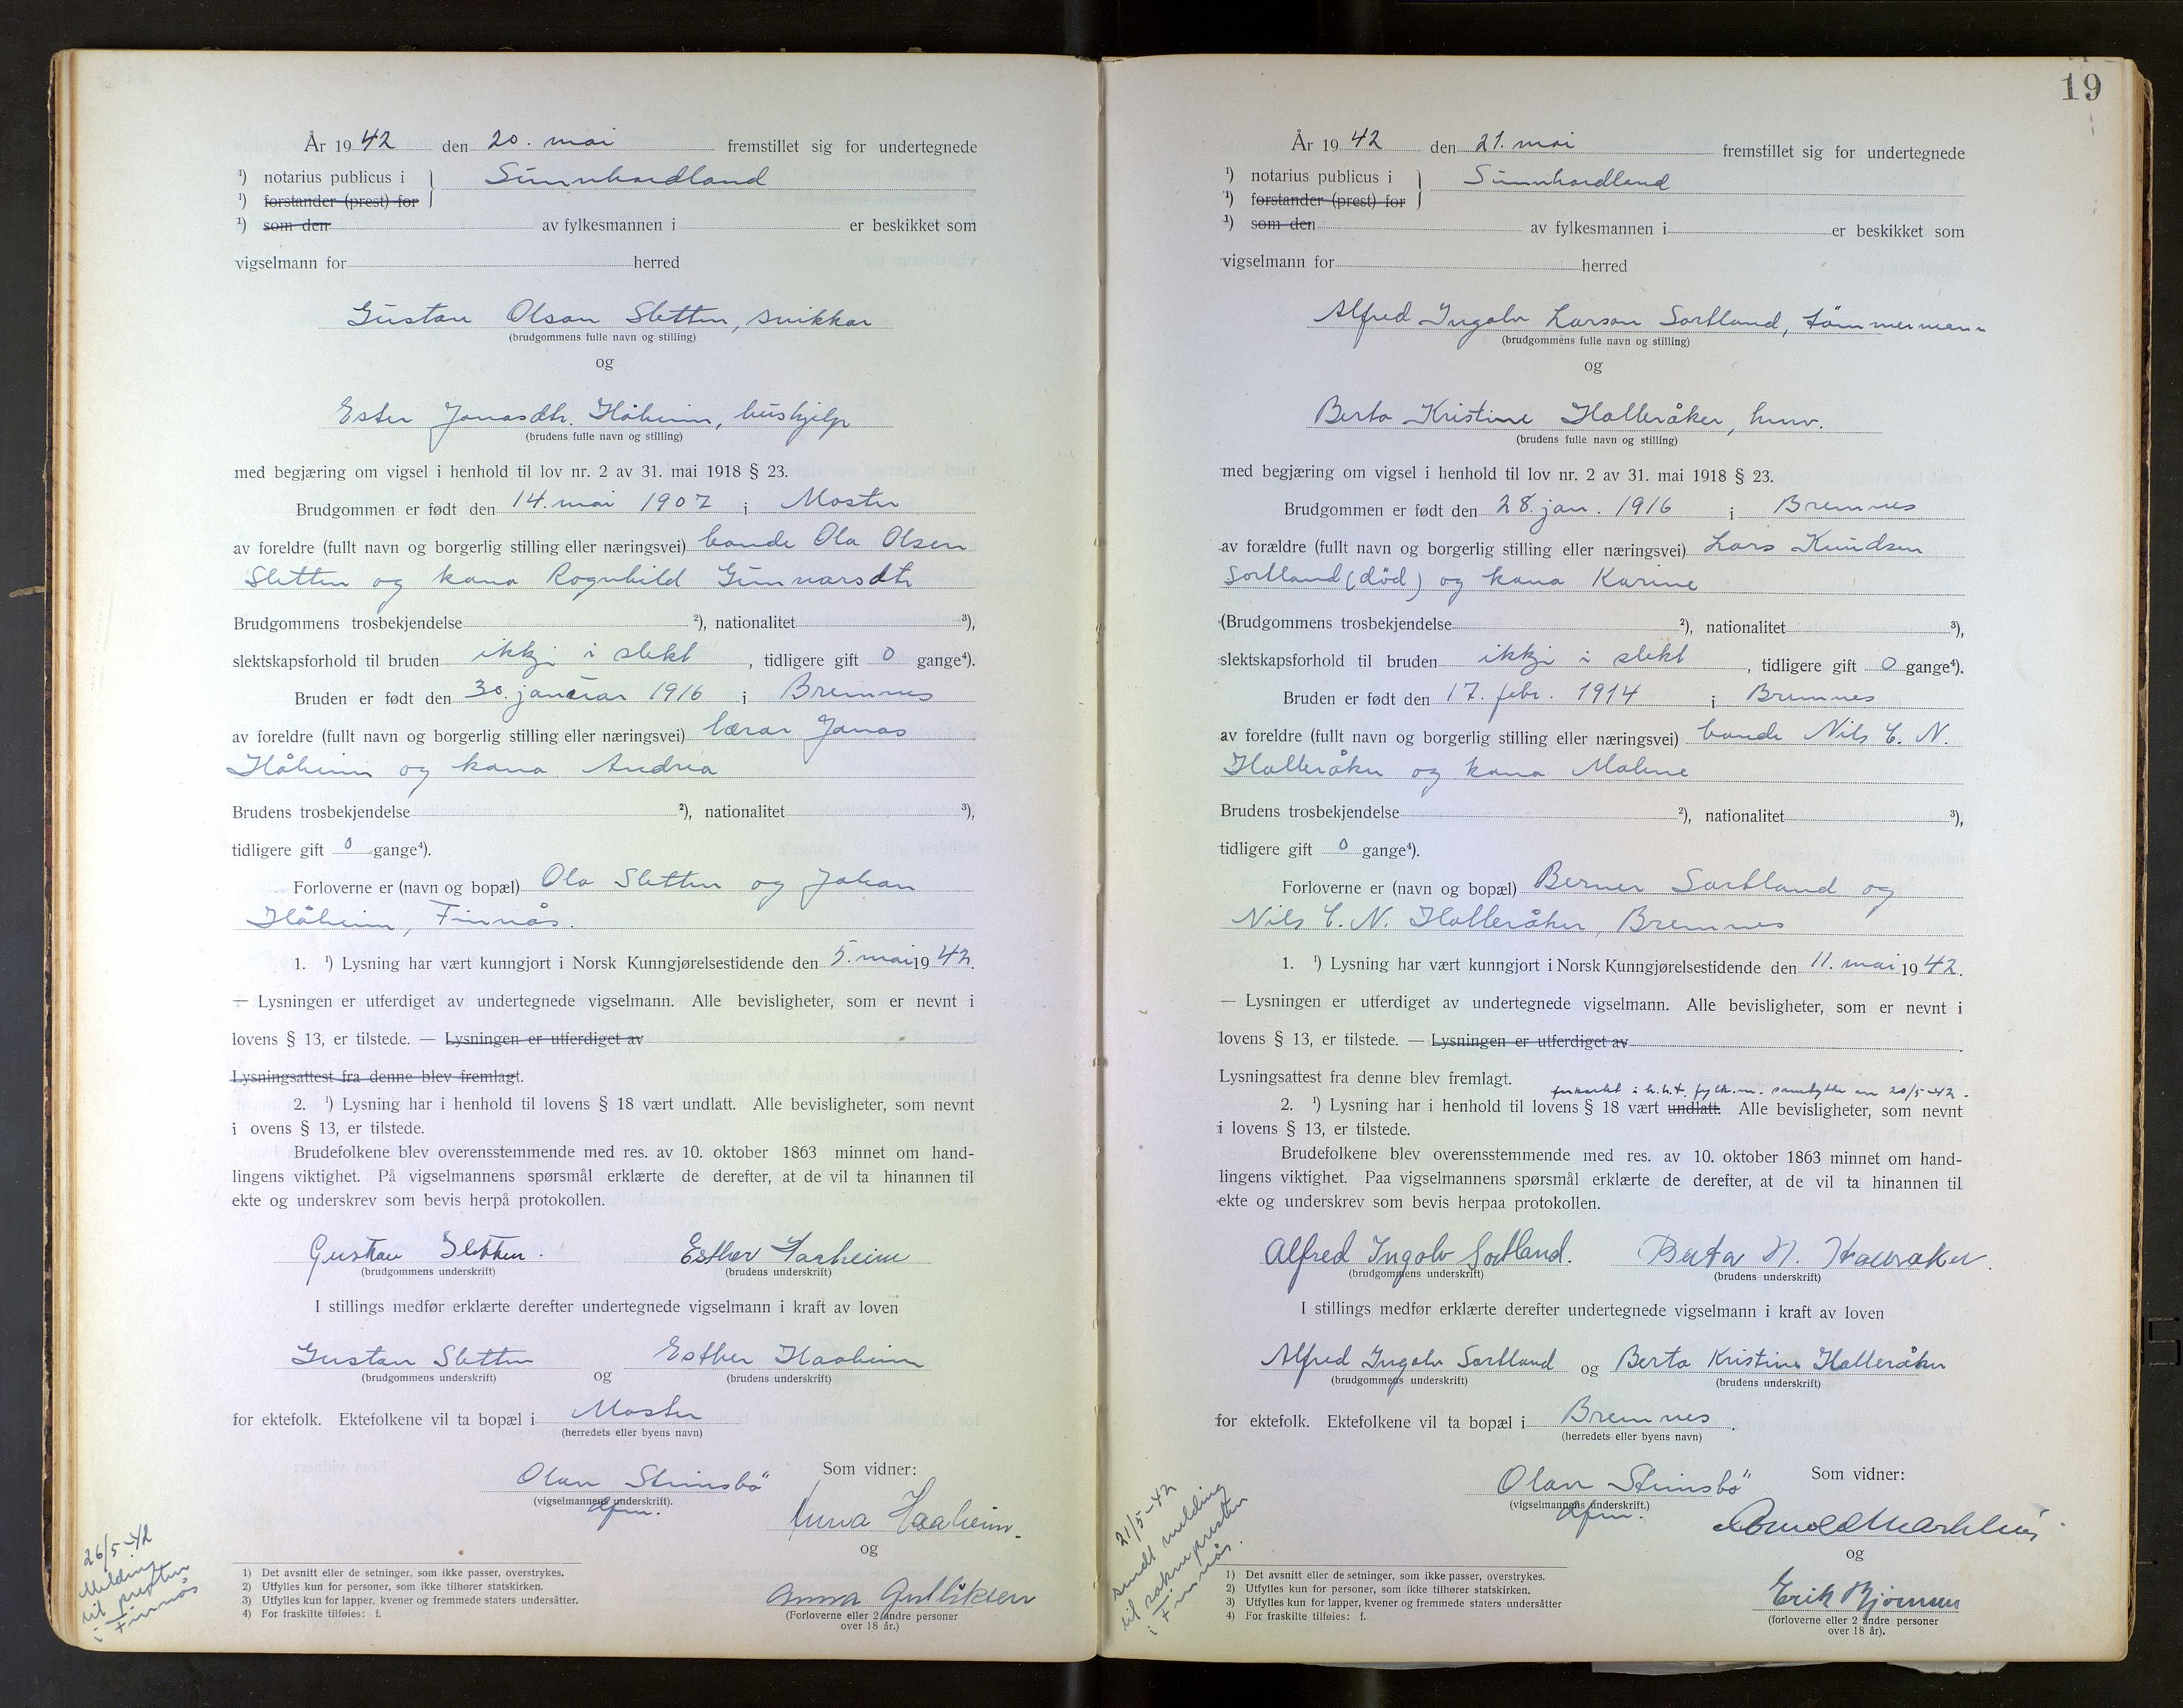 År 1942 den 20. mai fremstillet sig for undertegnede
¹) notarius publicus i } Sunnhordland
¹) forstander (prest) for
¹) som den av fylkesmannen i er beskikket som
vigselmann for herred
Gustav Olson Sletten, snikkar
(brudgommens fulle navn og stilling)
og
Ester Jonasdtr. Håheim, hushjelp
(brudens fulle navn og stilling)
med begjæring om vigsel i henhold til lov nr. 2 av 31. mai 1918 § 23.
Brudgommen er født den 14. mai 1907 i Moster
av foreldre (fullt navn og borgerlig stilling eller næringsvei) bonde Ola Olsen
Sletten og kona Ragnhild Gunnarsdtr
Brudgommens trosbekjendelse ²), nationalitet ³),
slektskapsforhold til bruden ikkje i slekt, tidligere gift 0 gange⁴).
Bruden er født den 30. januar 1916 i Bremnes
av foreldre (fullt navn og borgerlig stilling eller næringsvei) lærar Jonas
Håheim og kona Andrea
Brudens trosbekjendelse ²), nationalitet ³),
tidligere gift 0 gange⁴).
Forloverne er (navn og bopæl) Ola Sletten og Johan
Håheim, Finnås.
1. ¹) Lysning har vært kunngjort i Norsk Kunngjørelsestidende den 5. mai 1942.
— Lysningen er utferdiget av undertegnede vigselmann. Alle bevisligheter, som er nevnt i
lovens § 13, er tilstede. — Lysningen er utferdiget av
Lysningsattest fra denne blev fremlagt.
2. ¹) Lysning har i henhold til lovens § 18 vært undlatt. Alle bevisligheter, som nevnt
i ovens § 13, er tilstede.
Brudefolkene blev overensstemmende med res. av 10. oktober 1863 minnet om hand-
lingens viktighet. På vigselmannens spørsmål erklærte de derefter, at de vil ta hinannen til
ekte og underskrev som bevis herpå protokollen.
Gustav Sletten. Esther Haaheim
(brudgommens underskrift) (brudens underskrift)
I stillings medfør erklærte derefter undertegnede vigselmann i kraft av loven
Gustav Sletten og Esther Haaheim
(brudgommens underskrift) (brudens underskrift)
for ektefolk. Ektefolkene vil ta bopæl i Moster
(herredets eller byens navn)
Olav Steinsbö Som vidner:
(vigselmannens underskrift).
dfm.
Anna Haaheim.
og
Anna Gulliksen
(Forloverne eller 2 andre personer
over 18 år.)
26/5-42
Melding
til presten
i Finnås
1) Det avsnitt eller de setninger, som ikke passer, overstrykes.
2) Utfylles kun for personer, som ikke tilhører statskirken.
3) Utfylles kun for lapper, kvener og fremmede staters undersåtter.
4) For fraskilte tilføies: f.
19
År 1942 den 21. mai fremstillet sig for undertegnede
¹) notarius publicus i } Sunnhordland
¹) forstander (prest) for
¹) som den av fylkesmannen i er beskikket som
vigselmann for herred
Alfred Ingolv Larson Sortland, tömmermann
(brudgommens fulle navn og stilling)
og
Berta Kristine Halleråker, husv.
(brudens fulle navn og stilling)
med begjæring om vigsel i henhold til lov nr. 2 av 31. mai 1918 § 23.
Brudgommen er født den 28. jan. 1916 i Bremnes
av forældre (fullt navn og borgerlig stilling eller næringsvei) Lars Knudsen
Sortland (död) og kona Karine
(Brudgommens trosbekjendelse ²), nationalitet ³),
slektskapsforhold til bruden ikkje i slekt, tidligere gift 0 gange⁴).
Bruden er født den 17. febr. 1914 i Bremnes
av foreldre (fullt navn og borgerlig stilling eller næringsvei) bonde Nils C. N.
Halleråker og kona Malene
Brudens trosbekjendelse ²), nationalitet ³),
tidligere gift 0 gange⁴).
Forloverne er (navn og bopæl) Berner Sortland og
Nils C. N. Halleråker, Bremnes
1. ¹) Lysning har vært kunngjort i Norsk Kunngjørelsestidende den 11. mai 1942.
— Lysningen er utferdiget av undertegnede vigselmann. Alle bevisligheter, som er nevnt i
lovens § 13, er tilstede. — Lysningen er utferdiget av
Lysningsattest fra denne blev fremlagt.
forkortet i h.h.t. fylk.m. samtykke av 20/5-42.
2. ¹) Lysning har i henhold til lovens § 18 vært undlatt. Alle bevisligheter, som nevnt
i lovens § 13, er tilstede.
Brudefolkene blev overensstemmende med res. av 10. oktober 1863 minnet om hand-
lingens viktighet. Paa vigselmannens spørsmål erklærte de derefter, at de vil ta hinannen til
ekte og underskrev som bevis herpaa protokollen.
Alfred Ingolv Sortland. Berta N. Halleraker.
(brudgommens underskrift) (brudens underskrift)
I stillings medfør erklærte derefter undertegnede vigselmann i kraft av loven
Alfred Ingolv Sortland og Berta Kristine Halleråker
(brudgommens underskrift) (brudens underskrift)
for ektefolk. Ektefolkene vil ta bopæl i Bremnes.
(herredets eller byens navn)
Olav Steinsbö Som vidner:
(vigselmannens underskrift.)
dfm.
og
Erik Bjørnsen
(forloverne eller 2 andre personer
over 18 år).
21/5-42
sendt melding
til soknepresten
i Finnås.
1) Det avsnitt eller de setninger, som ikke passer, overstrykes.
2) Utfylles kun for personer, som ikke tilhører statskirken.
3) Utfylles kun for lapper, kvener og fremmede staters undersåtter
4) For fraskilte tilføies: f.